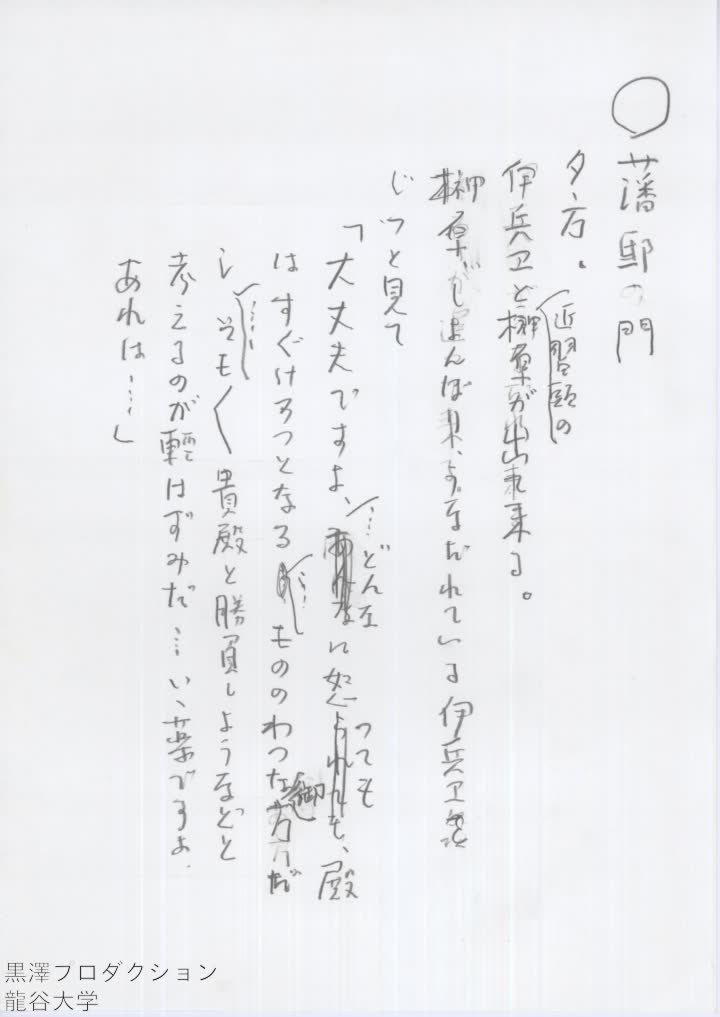 ○藩邸の門
夕方。
伊兵卫と近習頭の榊原が出て来る。
榊原がしょんぼり、うなだれている伊兵卫を
じっと見て
「大丈夫ですよ、…どんなに怒つても、殿
はすぐけろっとなる……もののわかつた御方だ
し……そも〱貴殿と勝負しようなどと
考えるのが軽はずみだ…いゝ薬ですよ、
あれは…」
黒澤プロダクション
龍谷大学